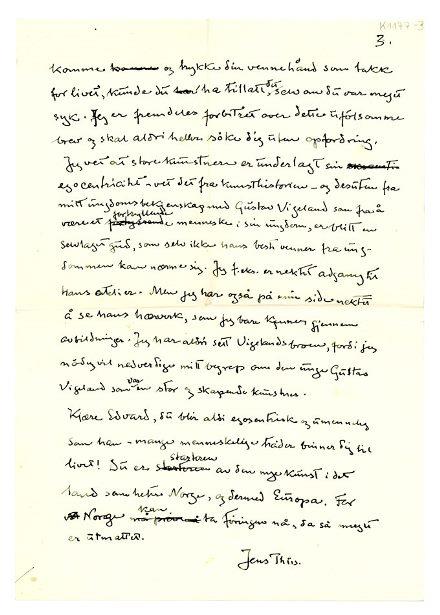 K1177-3
3.
komme komme og trykke din vennehånd som takk
for livet, kunde du har ha tillatt det, selv om du var meget
syk. Jeg er fremdeles forbitret over dette ufölsomme
brev og skal aldri heller söke dig uten opfordring.
Jeg vet at store kunstnere er underlagt sin
egocentricitet – vet det fra kunsthistorien – og desuten fra
mitt ungdomsbekjenskap med Gustav Vigeland som fra å
være et fortryllende menneske i sin ungdom, er blitt en
selvlaget gud, som selv ikke hans beste venner fra ung-
dommen kan nærme sig. Jeg f.eks. er nektet adgang til
hans atelier. Men jeg har også på min side nektet
å se hans hærverk, som jeg bare kjenner gjennem
avbildninger. Jeg har aldri sett Vigelandsbroen, fordi jeg
nödig vil nedverdige mitt begrep om den unge Gustav
Vigeland som var en stor og skapende kunstner.
Kjære Edvard, du blir aldri egosentrisk og umenneskelig
som han – mange menneskelige tråder binner dig til
livet! Du er starteren av den nye kunst i det
land som heter Norge, og dermed Europa. For
Norge kan ta föringen nå, da så meget
er utmattet.
Jens Thiis.